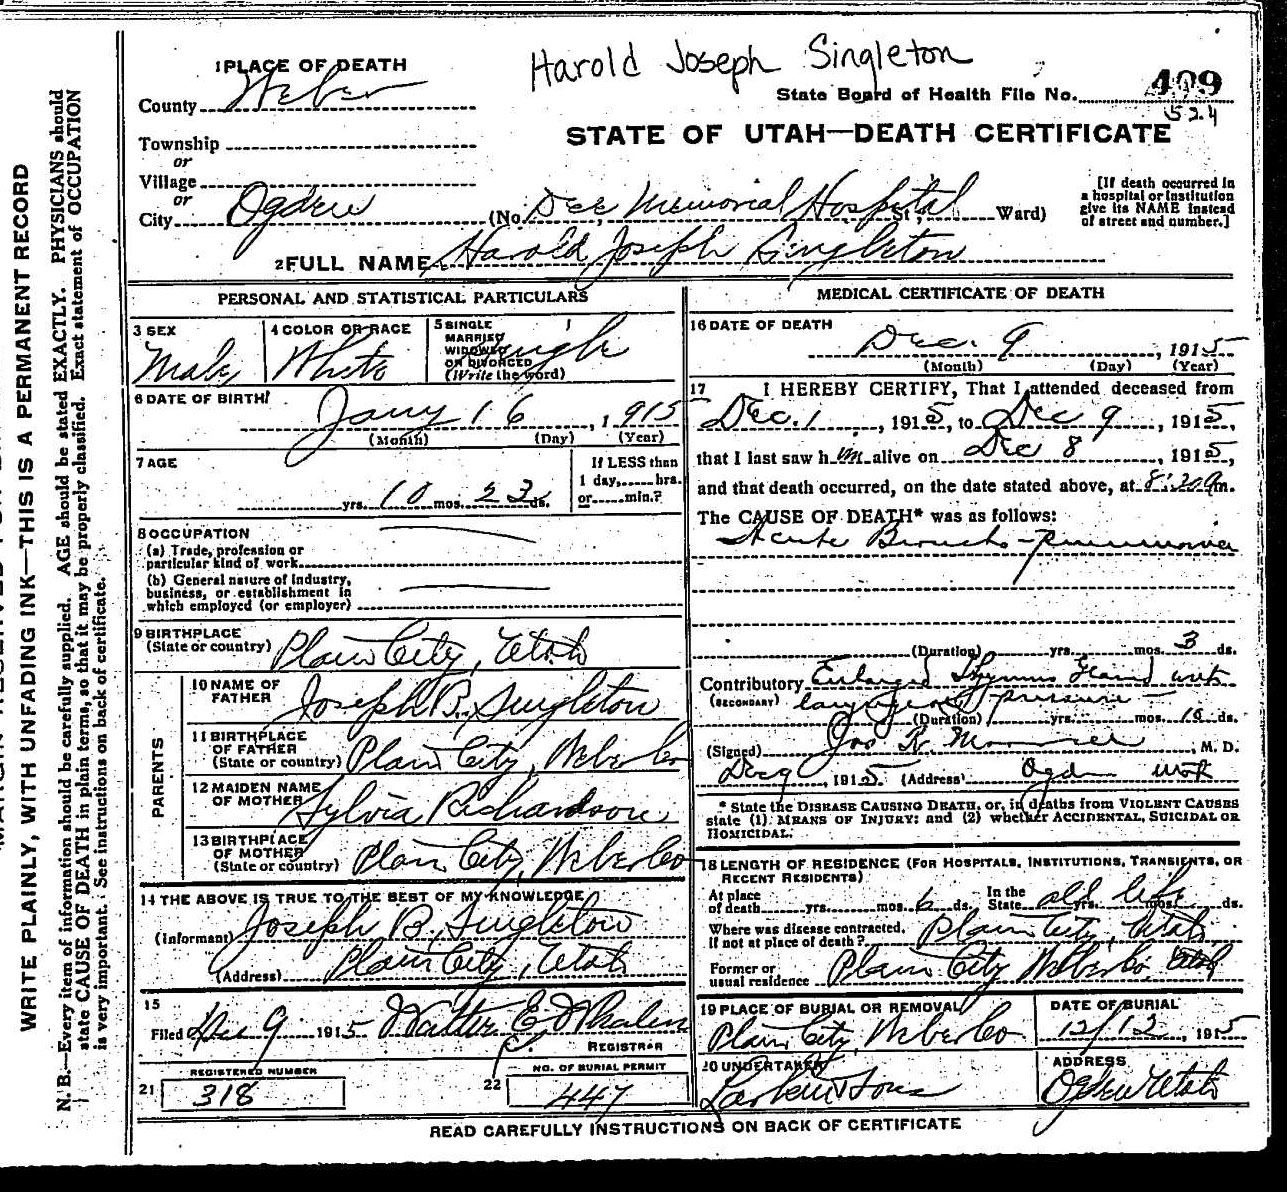 Harold Joseph Singleton
1 PLACE OF DEATH
County Weber
State Board of Health File No. 409
524
STATE OF UTAH—DEATH CERTIFICATE
Township
or
Village
or
City Ogden (No. Dee Memorial Hospital St., Ward)
[If death occurred in a hospital or institution give its NAME instead of street and number.]
2 FULL NAME Harold Joseph Singleton
PERSONAL AND STATISTICAL PARTICULARS
3 SEX Male
4 COLOR OR RACE White
5 SINGLE MARRIED WIDOWED OR DIVORCED (Write the word) Single
6 DATE OF BIRTH
Jany 16, 1915
(Month) (Day) (Year)
7 AGE
yrs. 10 mos. 23 ds.
If LESS than 1 day, hrs. or min.?
8 OCCUPATION
(a) Trade, profession or particular kind of work
(b) General nature of Industry, business, or establishment in which employed (or employer)
9 BIRTHPLACE (State or country) Plain City, Utah
PARENTS
10 NAME OF FATHER Joseph B. Singleton
11 BIRTHPLACE OF FATHER (State or country) Plain City, Weber Co
12 MAIDEN NAME OF MOTHER Sylvia Richardson
13 BIRTHPLACE OF MOTHER (State or country) Plain City, Weber Co
14 THE ABOVE IS TRUE TO THE BEST OF MY KNOWLEDGE
(Informant) Joseph B. Singleton
(Address) Plain City, Utah
15
Filed Dec 9 1915 Walter E. Whalen
REGISTRAR
REGISTERED NUMBER
21 318
NO. OF BURIAL PERMIT
22 447
MEDICAL CERTIFICATE OF DEATH
16 DATE OF DEATH
Dec. 9, 1915
(Month) (Day) (Year)
17 I HEREBY CERTIFY, That I attended deceased from
Dec. 1, 1915, to Dec 9, 1915,
that I last saw him alive on Dec 8, 1915,
and that death occurred, on the date stated above, at 8:20 a m.
The CAUSE OF DEATH* was as follows:
Acute Broncho-pneumonia
(Duration) yrs. mos. 3 ds.
Contributory Enlarged Thymus Gland with
(SECONDARY) laryngeal
(Duration) yrs. mos. 10 ds.
(Signed) Jos R. M. D.
Dec 9, 1915 (Address) Ogden Utah
* State the DISEASE CAUSING DEATH, or, in deaths from VIOLENT CAUSES
state (1) MEANS OF INJURY; and (2) whether ACCIDENTAL, SUICIDAL OR
HOMICIDAL.
18 LENGTH OF RESIDENCE (FOR HOSPITALS, INSTITUTIONS, TRANSIENTS, OR
RECENT RESIDENTS)
At place of death yrs. mos. 6 ds. In the State all life yrs. mos. ds.
Where was disease contracted, if not at place of death? Plain City, Utah
Former or usual residence Plain City Weber Co Utah
19 PLACE OF BURIAL OR REMOVAL
Plain City, Weber Co
DATE OF BURIAL
12/12, 1915
20 UNDERTAKER
Larkin & Sons
ADDRESS
Ogden Utah
READ CAREFULLY INSTRUCTIONS ON BACK OF CERTIFICATE
WRITE PLAINLY, WITH UNFADING INK—THIS IS A PERMANENT RECORD
N. B.—Every item of information should be carefully supplied. AGE should be stated EXACTLY. PHYSICIANS should
state CAUSE OF DEATH in plain terms, so that it may be properly classified. Exact statement of OCCUPATION
is very important. See instructions on back of certificate.